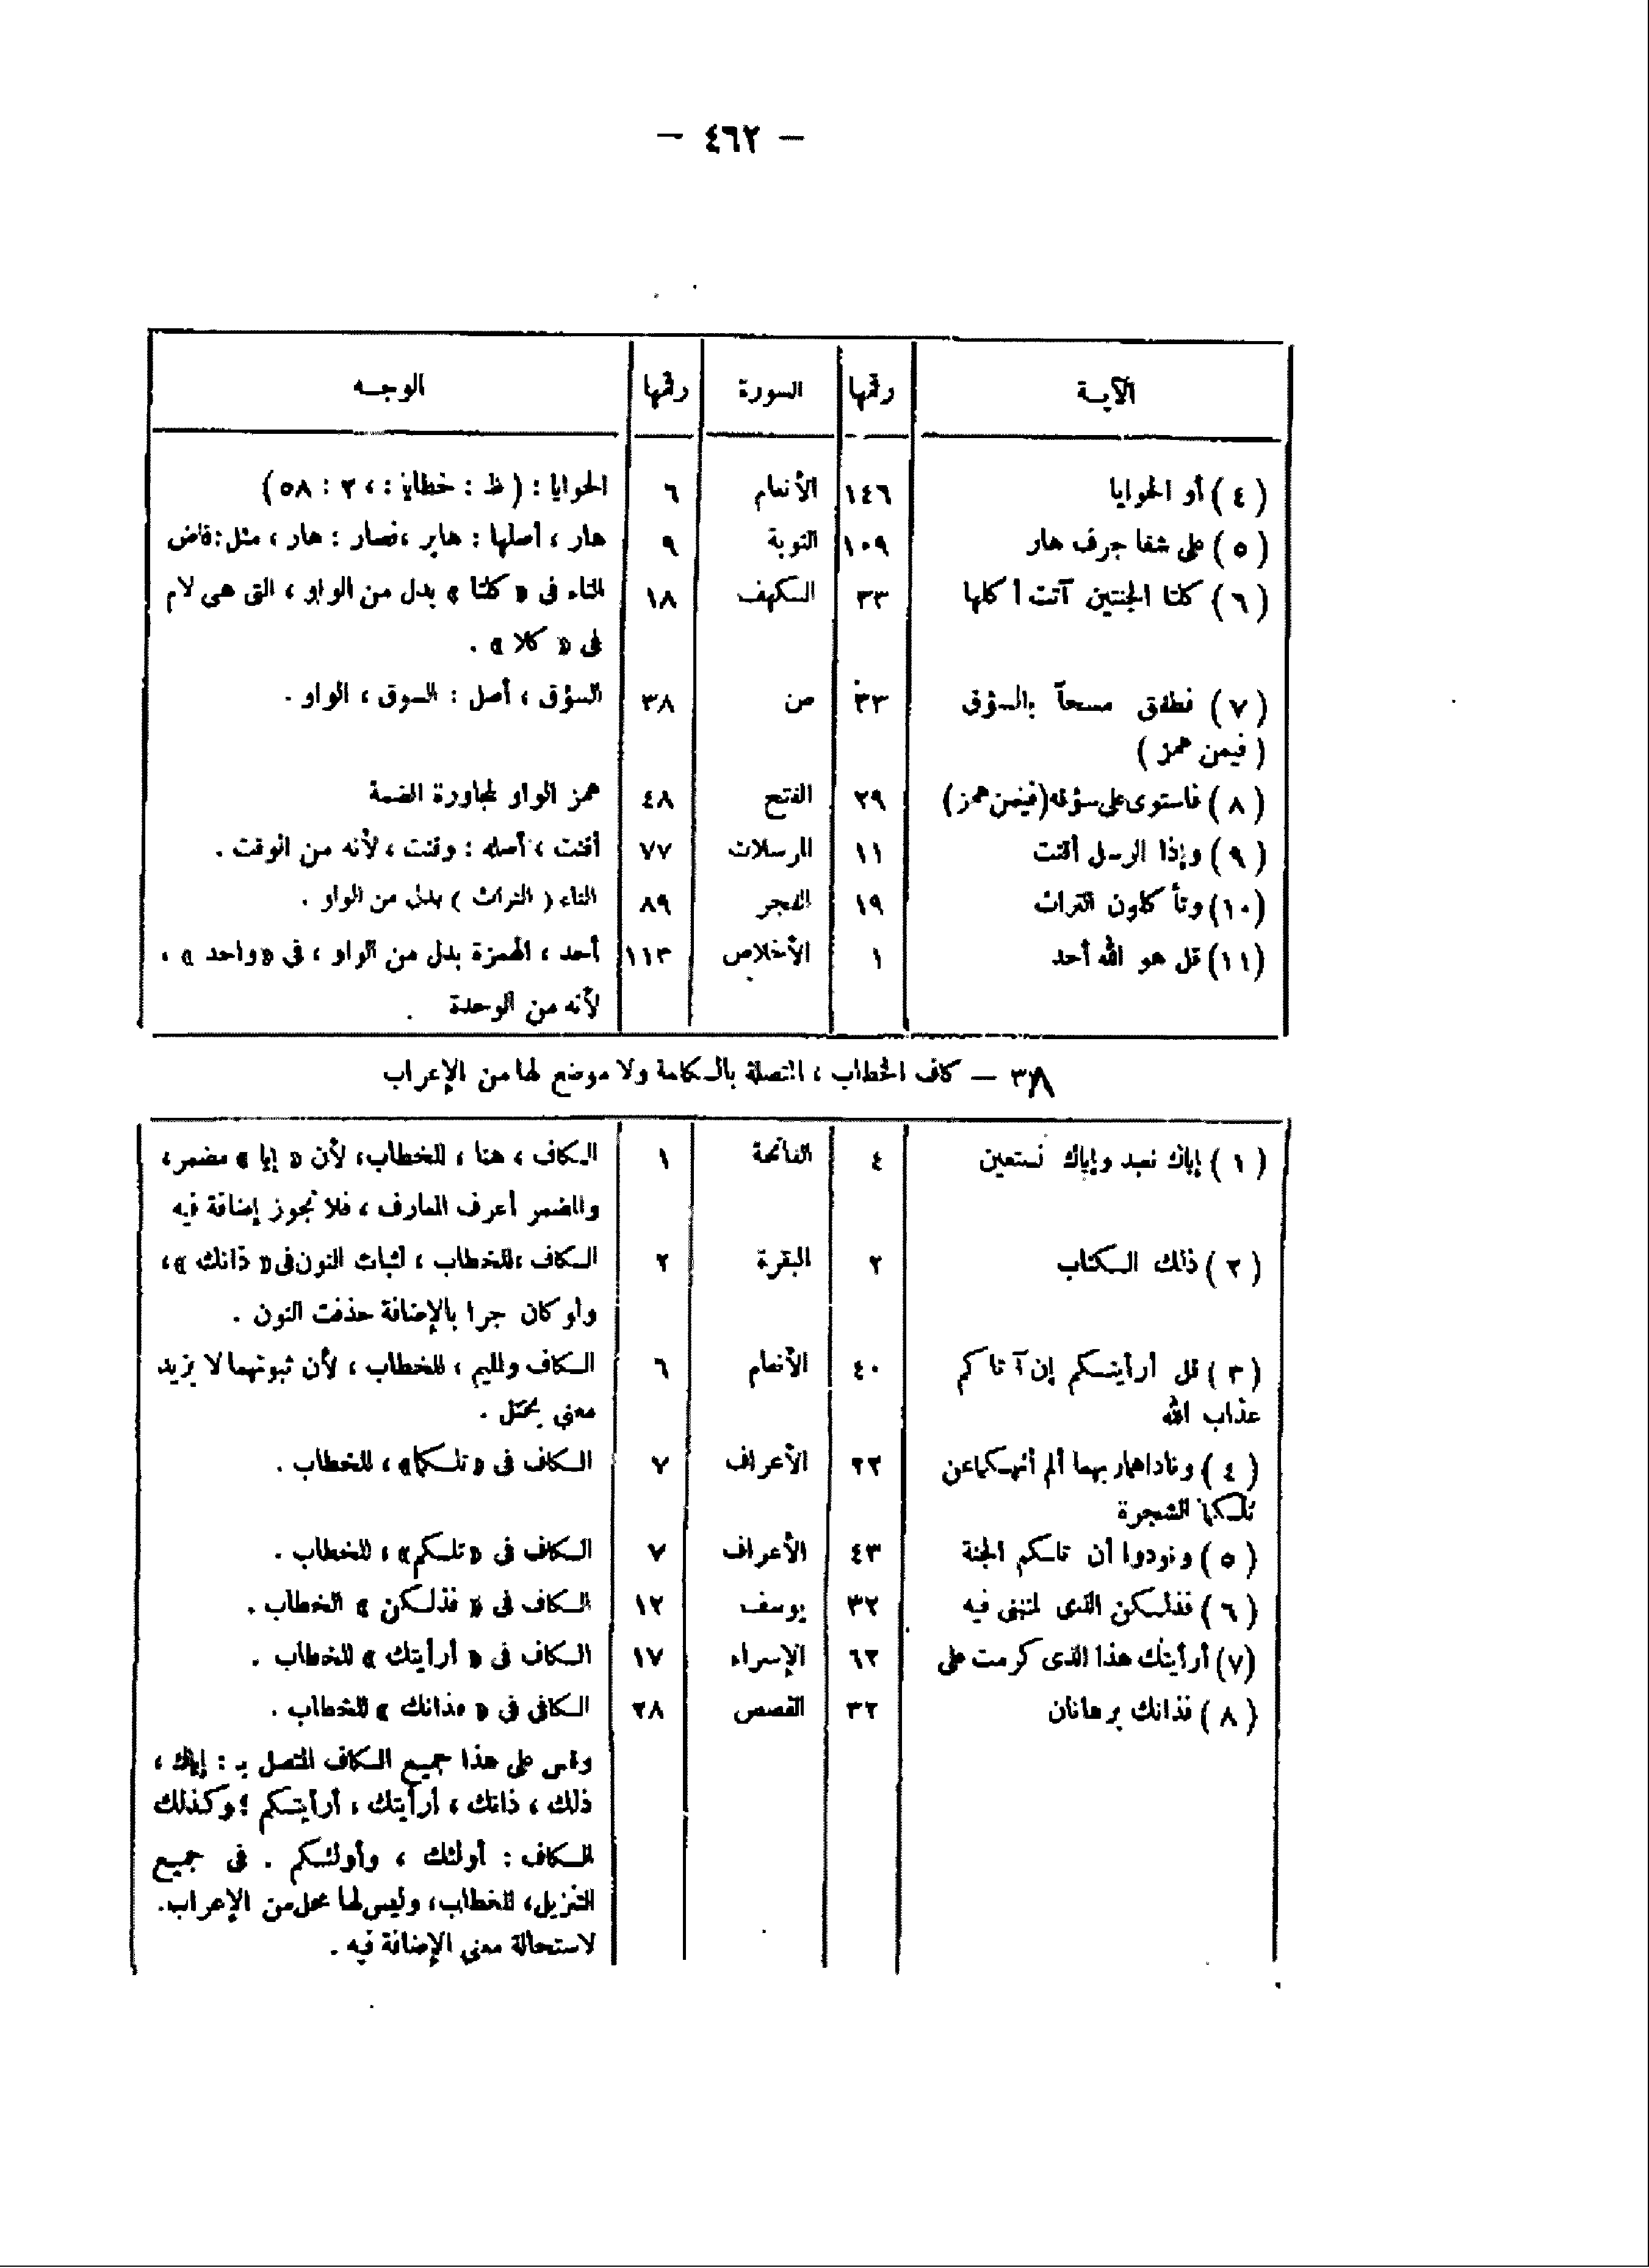 — ٤٦٢ —
الآيــة رقمها السورة رقمها الوجــه
(٤) أو الحوايا ١٤٦ الأنعام ٦ الحوايا : (ظ : خطايا : ، ٢ : ٥٨)
(٥) على شفا جرف هار ١٠٩ التوبة ٩ هار ، أصلها : هاير ، فصار : هار ، مثل : قاض
(٦) كلتا الجنتين آتت أكلها ٣٣ الكهف ١٨ التاء فى « كلتا » بدل من الواو ، التى هى لام
فى « كلا » .
(٧) فطفق مسحآ بالسؤق ٣٣ ص ٣٨ السؤق ، أصل : السوق ، الواو .
(فيمن همز)
(٨) فاستوى على سؤقه (فيمن همز) ٢٩ الفتح ٤٨ همز الواو لمجاورة الضمة
(٩) وإذا الرسل أقتت ١١ المرسلات ٧٧ أقتت ، أصله : وقتت ، لأنه من الوقت .
(١٠) وتأكلون التراث ١٩ الفجر ٨٩ التاء ( التراث ) بدل من الواو .
(١١) قل هو الله أحد ١ الأخلاص ١١٣ أحد ، الهمزة بدل من الواو ، فى « واحد » ،
لأنه من الوحدة .
٣٨ — كاف الخطاب ، المتصلة بالكلمة ولا موضع لها من الإعراب
(١) إياك نعبد وإياك نستعين ٤ الفاتحة ١ الكاف ، هنا ، للخطاب ، لأن « إيا » مضمر ،
والمضمر أعرف المعارف ، فلا تجوز إضافة فيه
(٢) ذلك الكتاب ٢ البقرة ٢ الكاف ، للخطاب ، لثبات النون فى « ذانك » ،
ولو كان جرا بالإضافة حذفت النون .
(٣) قل أرأيتكم إن آتاكم ٤٠ الأنعام ٦ الكاف والميم ، للخطاب ، لأن ثبوتهما لا يزيد
عذاب الله معنى يختل .
(٤) وناداهما ربهما ألم أنهكما عن ٢٢ الأعراف ٧ الكاف فى « تلكما » ، للخطاب .
تلكما الشجرة
(٥) ونودوا أن تلكم الجنة ٤٣ الأعراف ٧ الكاف فى « تلكم » ، للخطاب .
(٦) فذلكن الذى لمتننى فيه ٣٢ يوسف ١٢ الكاف فى « فذلكن » للخطاب .
(٧) أرأيتك هذا الذى كرمت على ٦٢ الإسراء ١٧ الكاف فى « أرأيتك » للخطاب .
(٨) فذانك برهانان ٣٢ القصص ٢٨ الكاف فى « فذانك » للخطاب .
وقس على هذا جميع الكاف المتصل بـ : إياك ،
ذلك ، ذانك ، أرأيتك ، أرأيتكم ؛ وكذلك
الكاف : أولئك ، وأولئكم . فى جميع
التنزيل ، للخطاب ، وليس لها محل من الإعراب .
لاستحالة معنى الإضافة فيه .